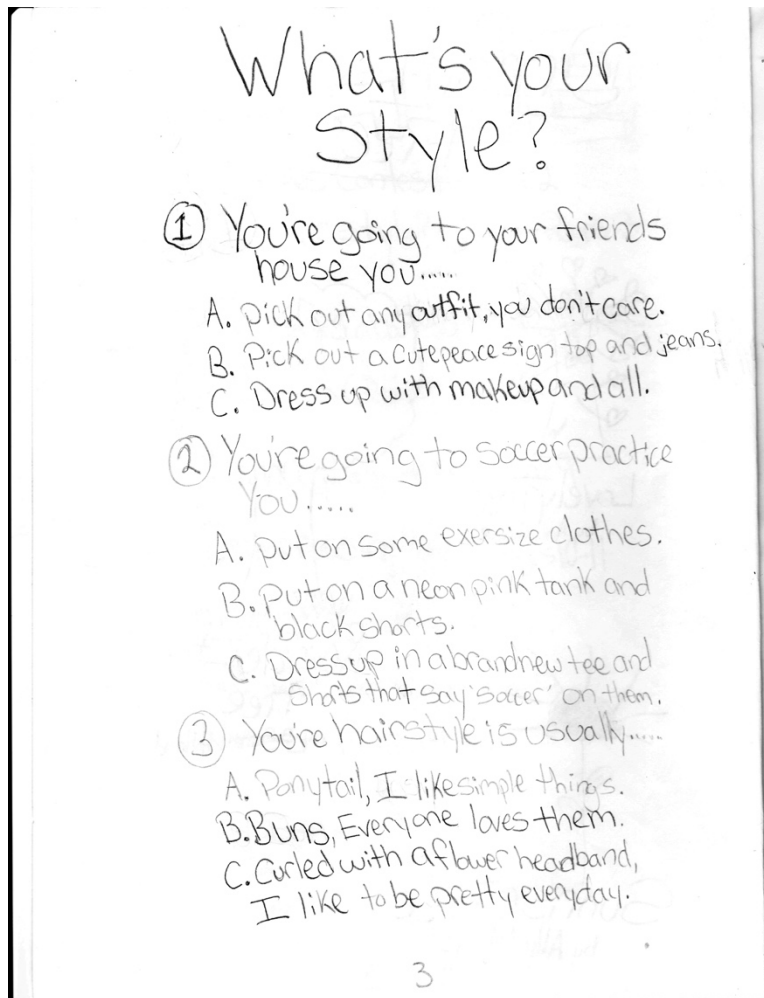 What's your
Style?
1 You're going to your friends
house you.....
A. pick out any outfit, you don't care.
B. Pick out a cute peace sign top and jeans.
C. Dress up with makeup and all.
2 You're going to soccer practice
You.....
A. put on some exersize clothes.
B. Put on a neon pink tank and
black shorts.
C. Dress up in a brand new tee and
shorts that say 'soccer' on them.
3 You're hairstyle is usually.....
A. Ponytail, I like simple things.
B. Buns, Everyone loves them.
C. Curled with a flower headband,
I like to be pretty everyday.
3